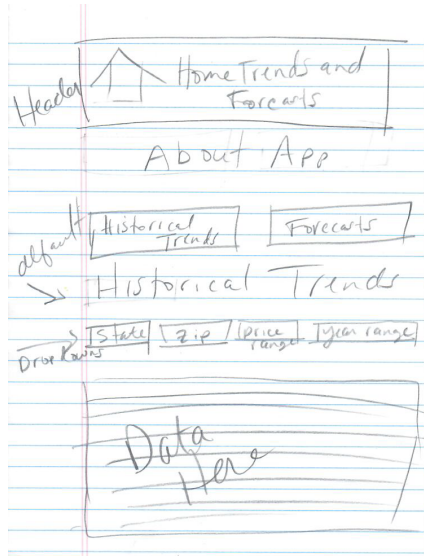 Header
Home Trends and
Forcarts
About App
default
Historical
Trends
Forecarts
Historical Trends
Drop downs
State
Zip
price
range
year range
Data
Here